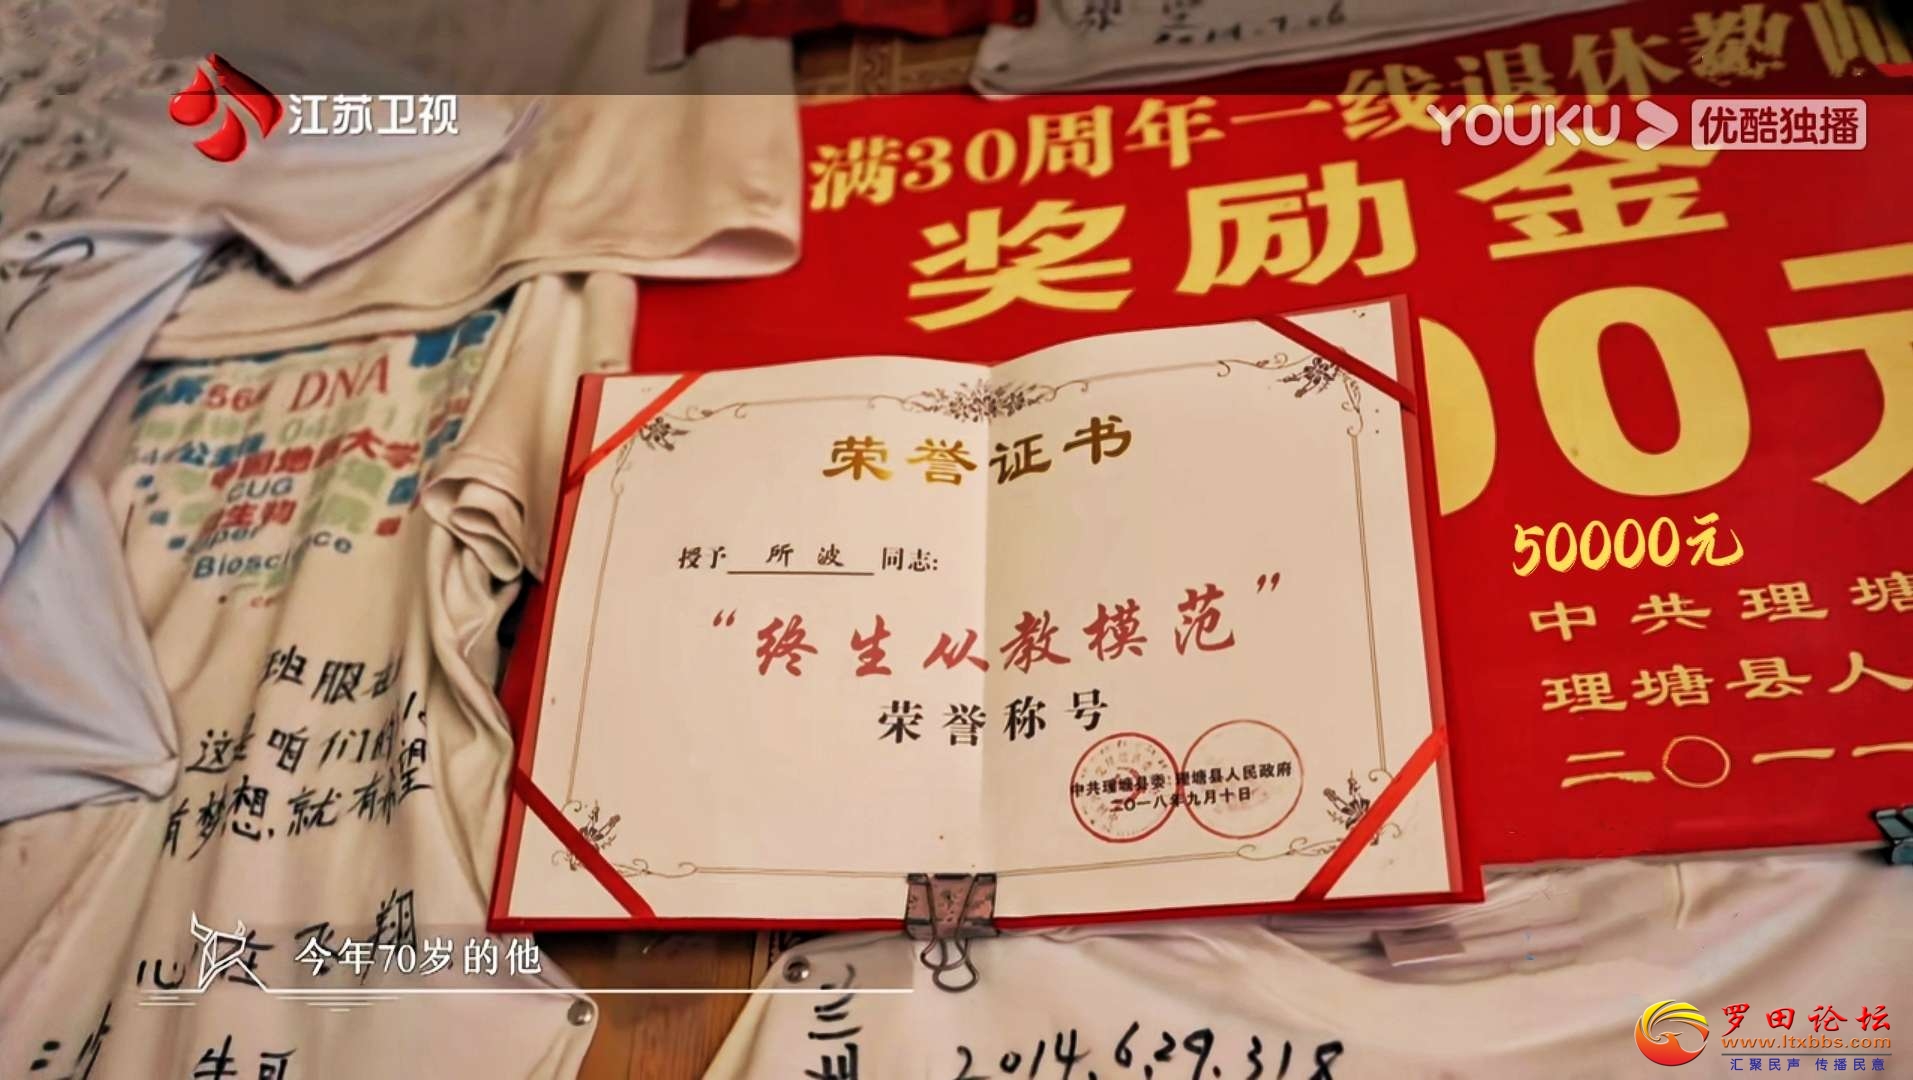 2014.7.06
江苏卫视
YOUKU 优酷独播
满30周年一线退休教师
奖励金
00元
50000元
中共理塘
理塘县人
二〇一一
DNA
CUG
荣誉证书
授予 所波 同志:
“终生从教模范”
荣誉称号
中共理塘县委 理塘县人民政府
二〇一八年九月十日
班服在
这是咱们的
有梦想,就有希望
心在飞翔
今年70岁的他
牛可
兰州
2014.6.29.318
罗田论坛
www.ltxbbs.com
汇聚民声 传播民意